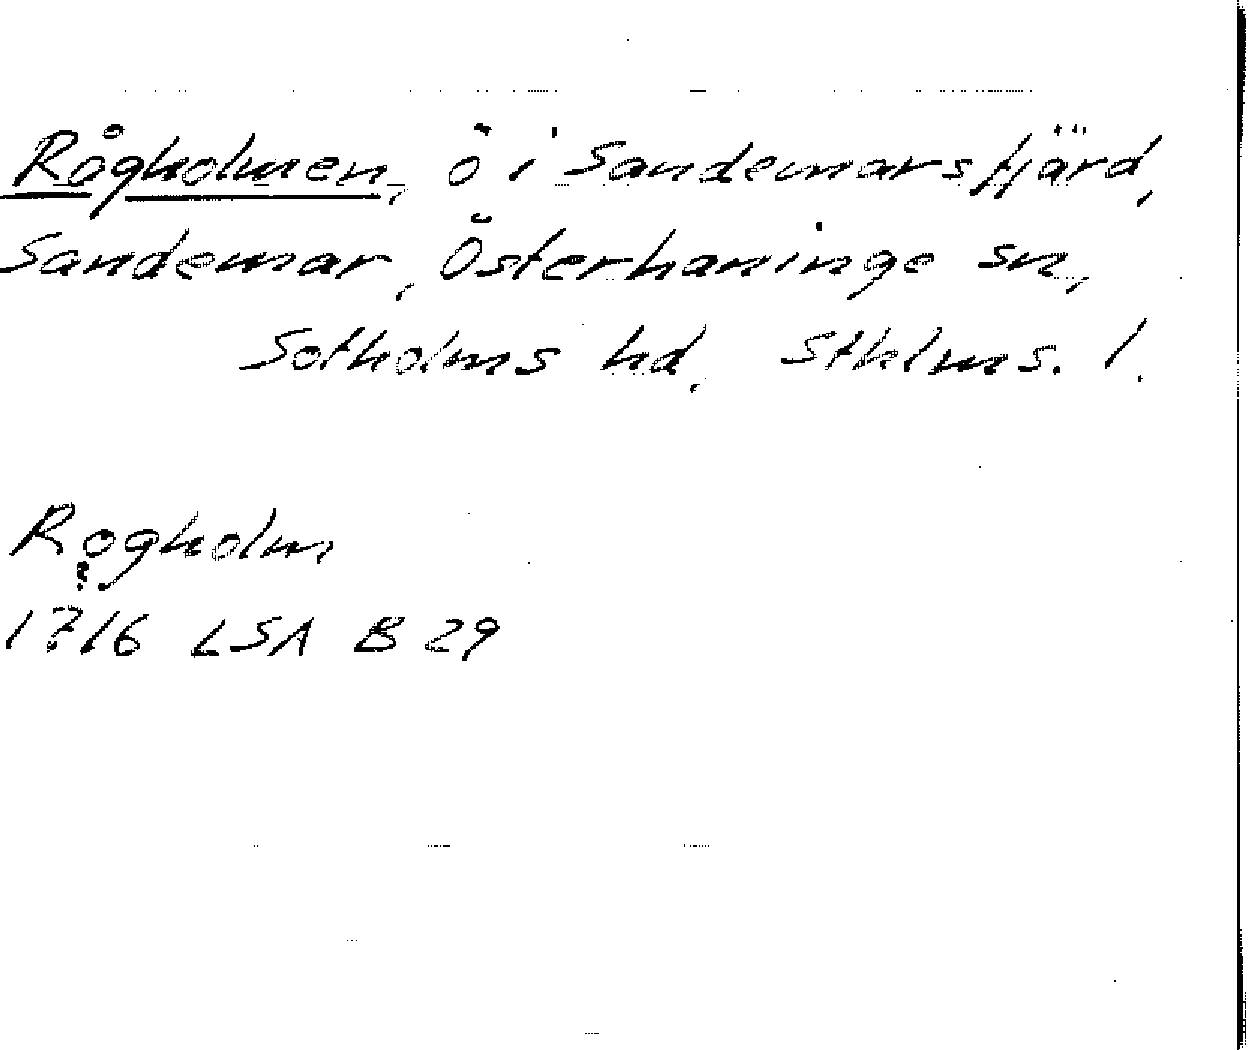 Rågholmen, ö i Sandemarsfjärd,
Sandemar, Österhaninge sn,
Sotholms hd, Sthlms. l.
Rogholm
?
1716 LSA B 29